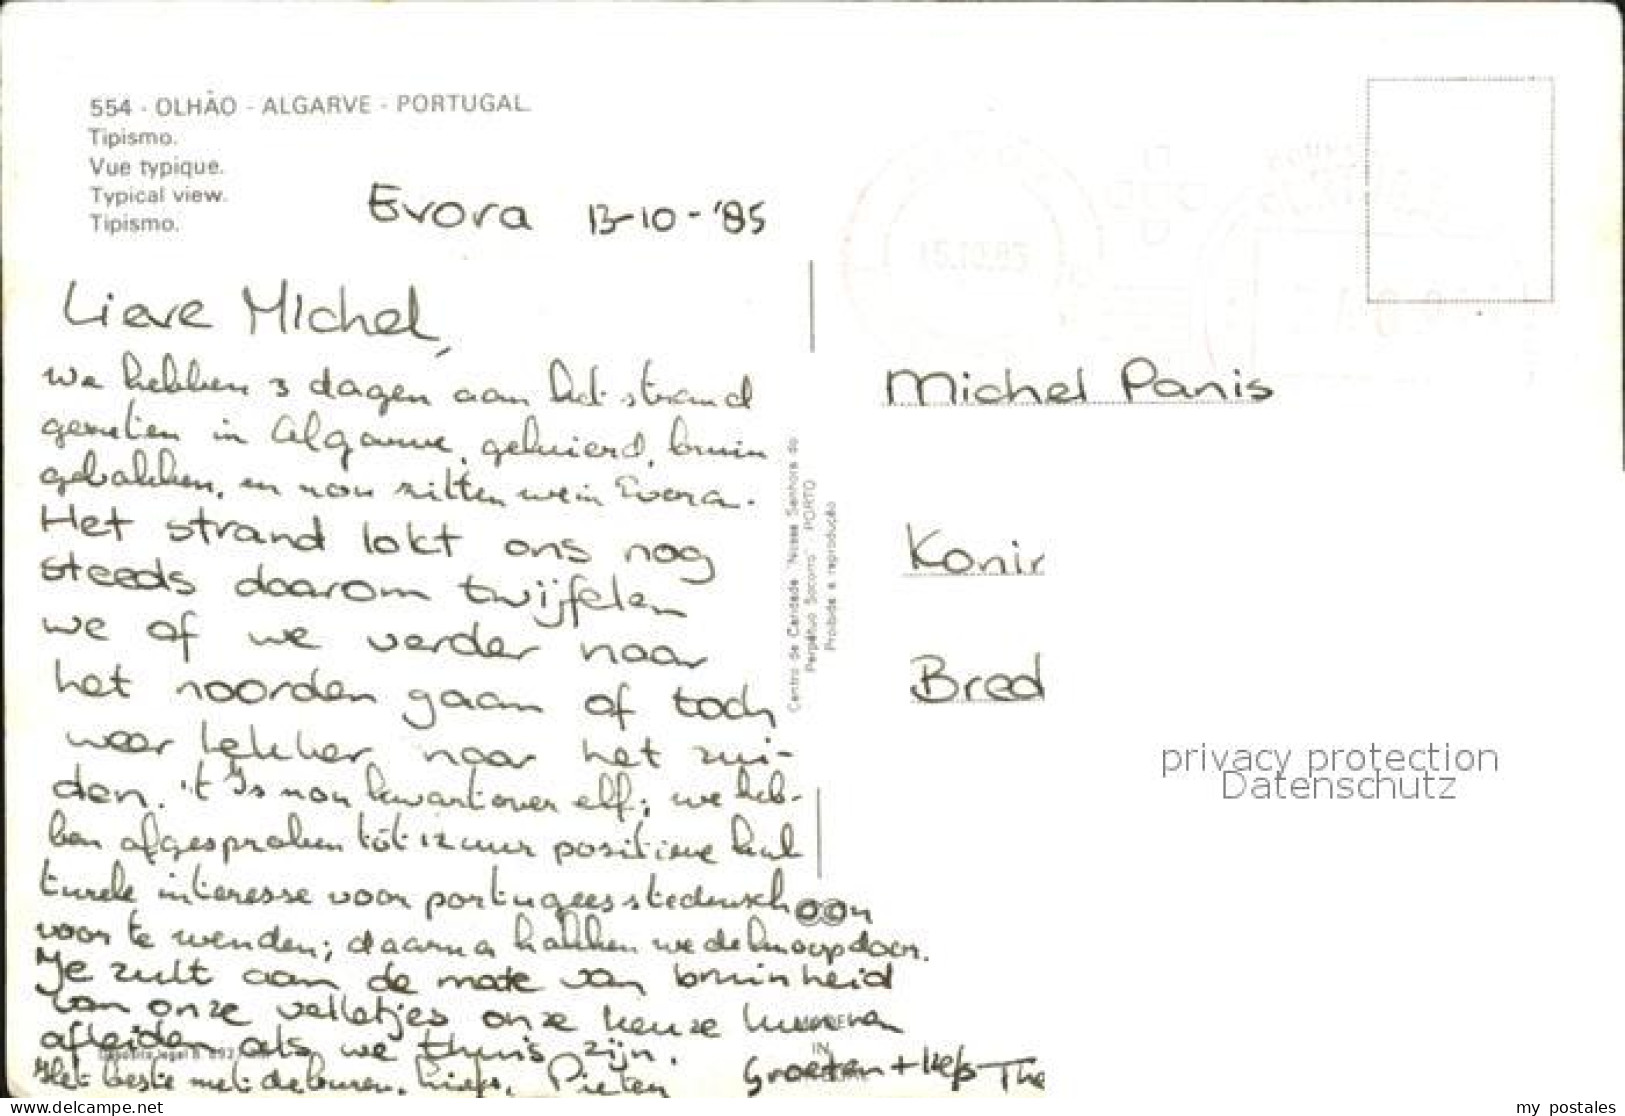 554 - OLHÃO - ALGARVE - PORTUGAL
Tipismo.
Vue typique.
Typical view.
Tipismo.
Evora 13-10-'85
Lieve Michel,
we hebben 3 dagen aan het strand
gezeten in Algarve, geluierd, bruin
gebakken, en nou zitten we in Evora.
Het strand lokt ons nog
steeds daarom twijfelen
we of we verder naar
het noorden gaan of toch
weer lekker naar het zui-
den. 't Is nou kwart over elf; we heb-
ben afgesproken tót 12 uur positieve kul
turele interesse voor portugees stedenschoon
voor te wenden; daarna hakken we de knoop door.
Je zult aan de mate van bruinheid
van onze velletjes onze keuze kunnen
afleiden als we thuis zijn.
Het beste met de buren, liefs, Pieter
Groeten + liefs The
Centro de Caridade "Nossa Senhora do
Perpétuo Socorro" - PORTO
Proibida a reprodução
15.10.85
Michel Panis
Konin
Bred
privacy protection
Datenschutz
IN
www.delcampe.net
my_postales